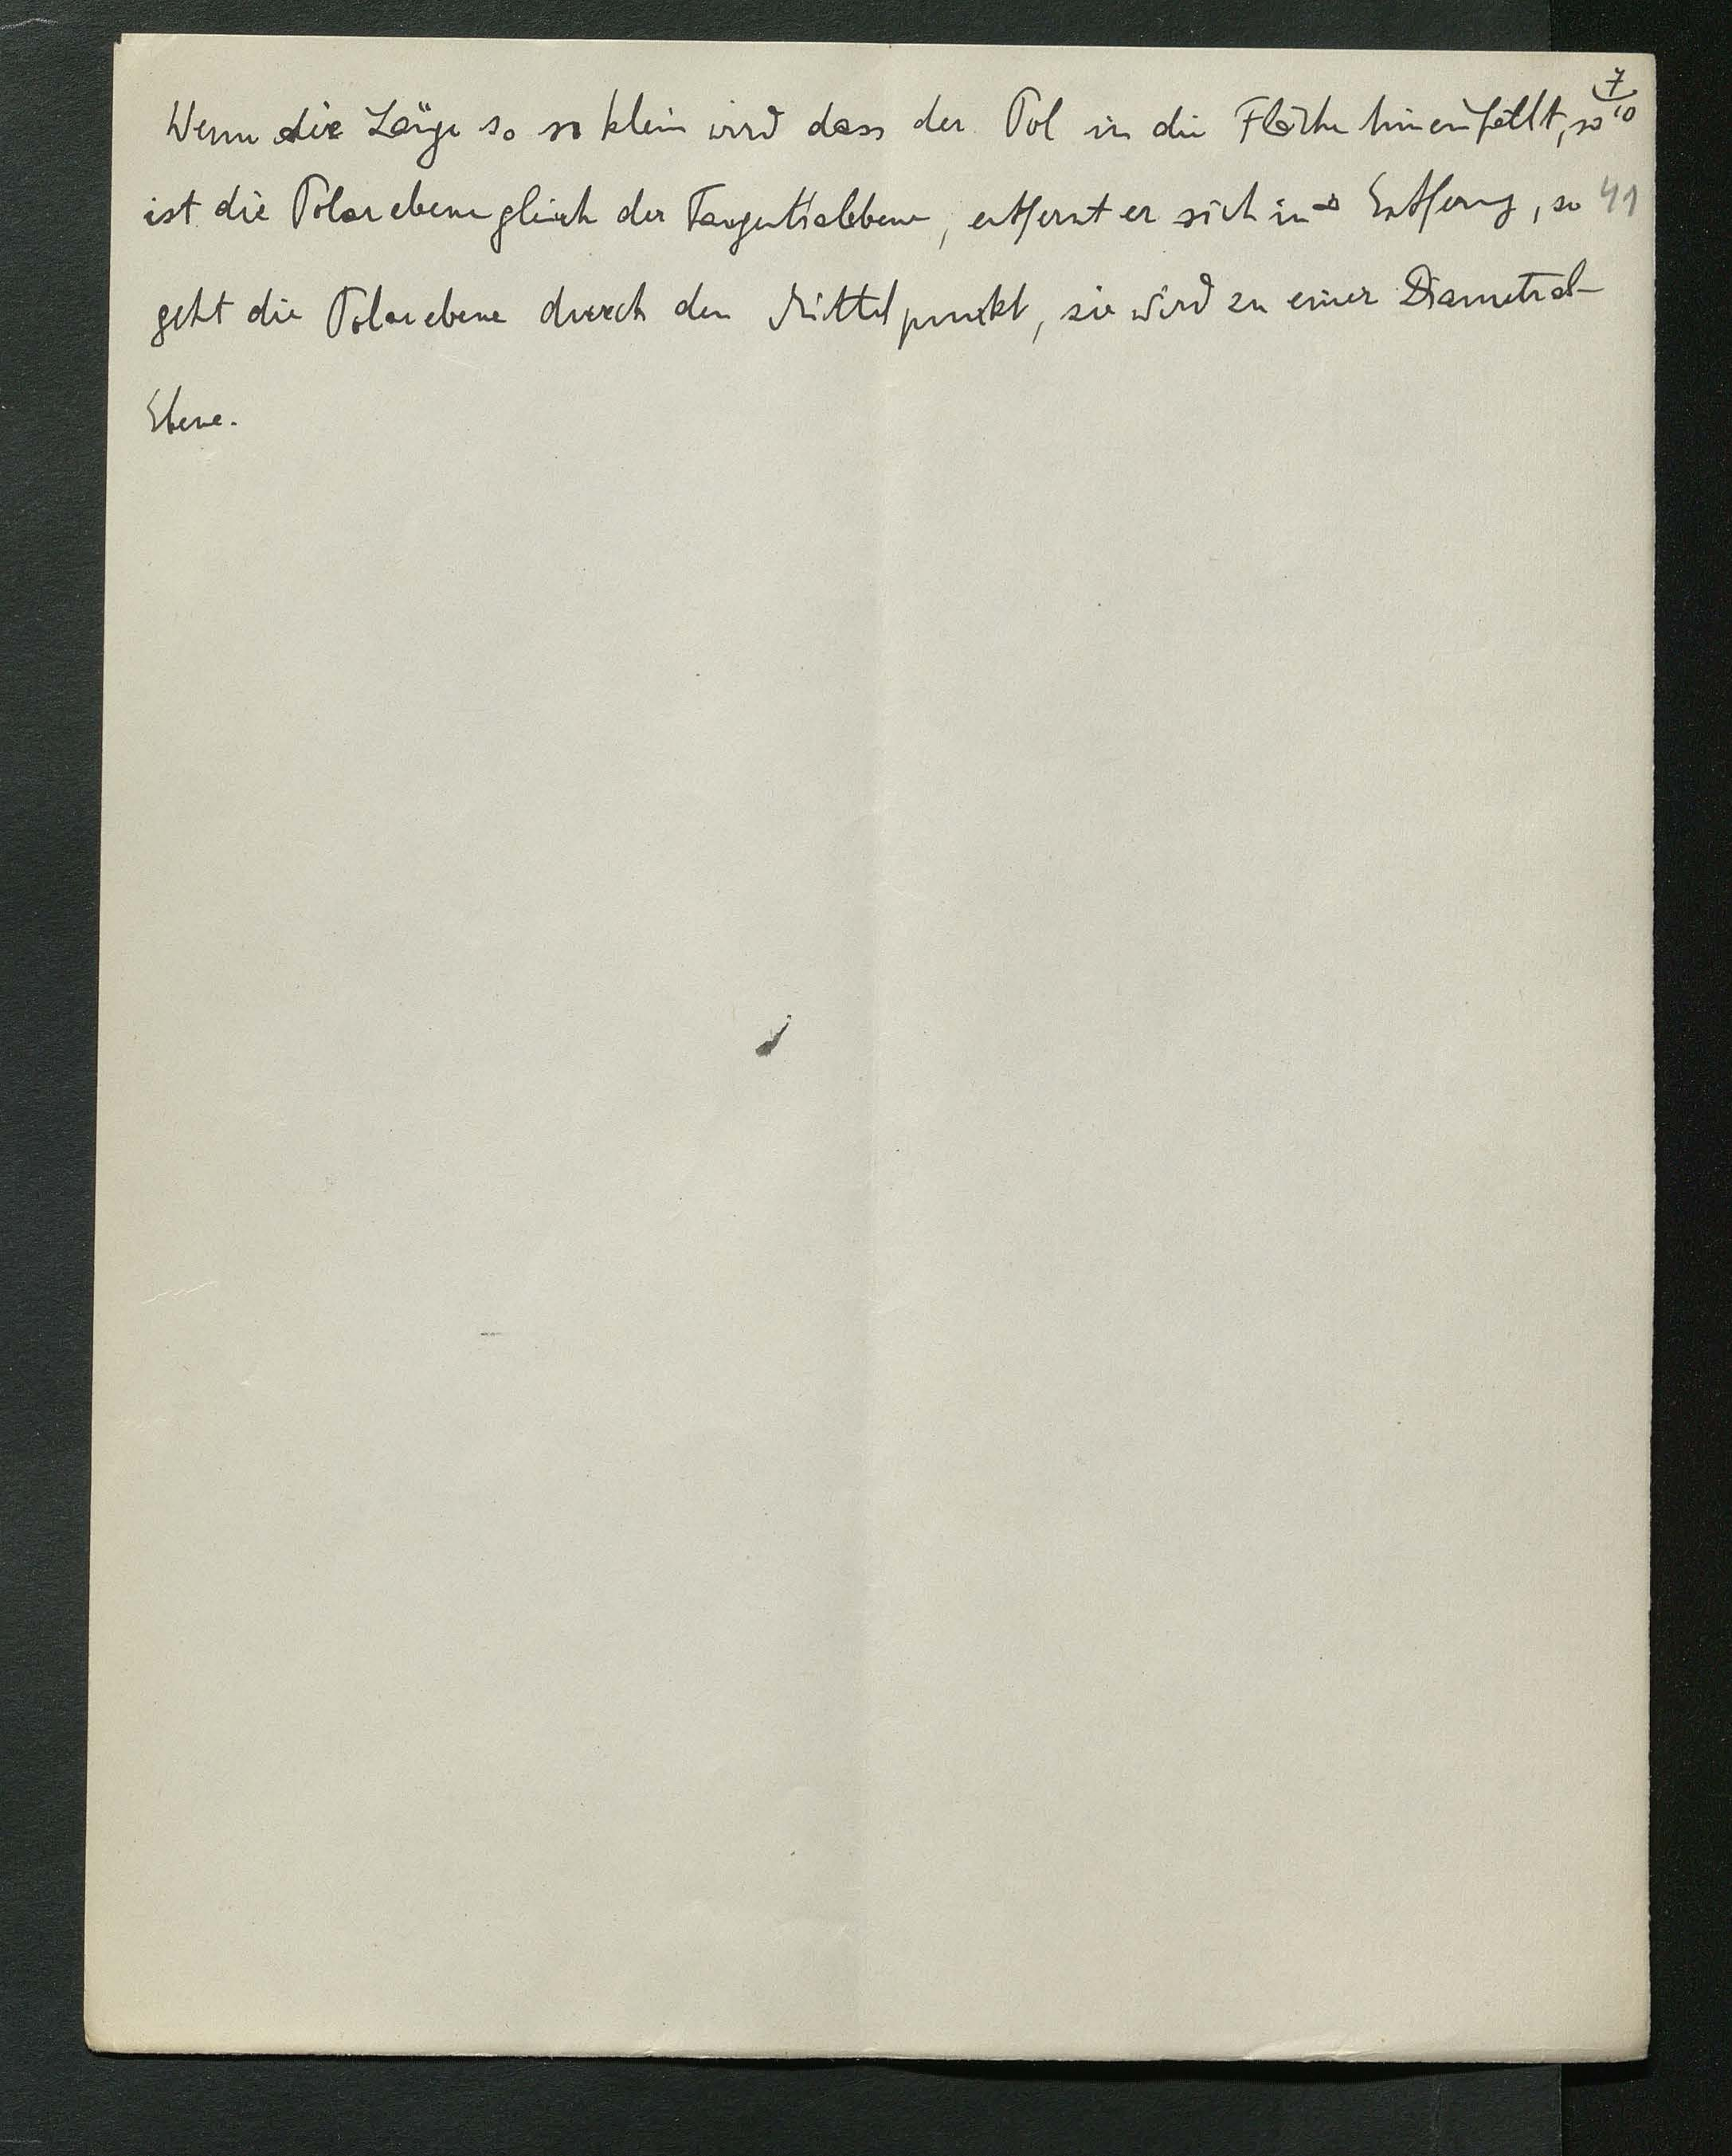 7
10
Wenn die Länge so so klein wird dass der Pol in die Fläche hineinfällt, so
ist die Polarebene gleich der Tangentialebene, entfernt er sich in ∞ Entferng, so
41
geht die Polarebene durch den Mittelpunkt, sie wird zu einer Diametral-
Ebene.